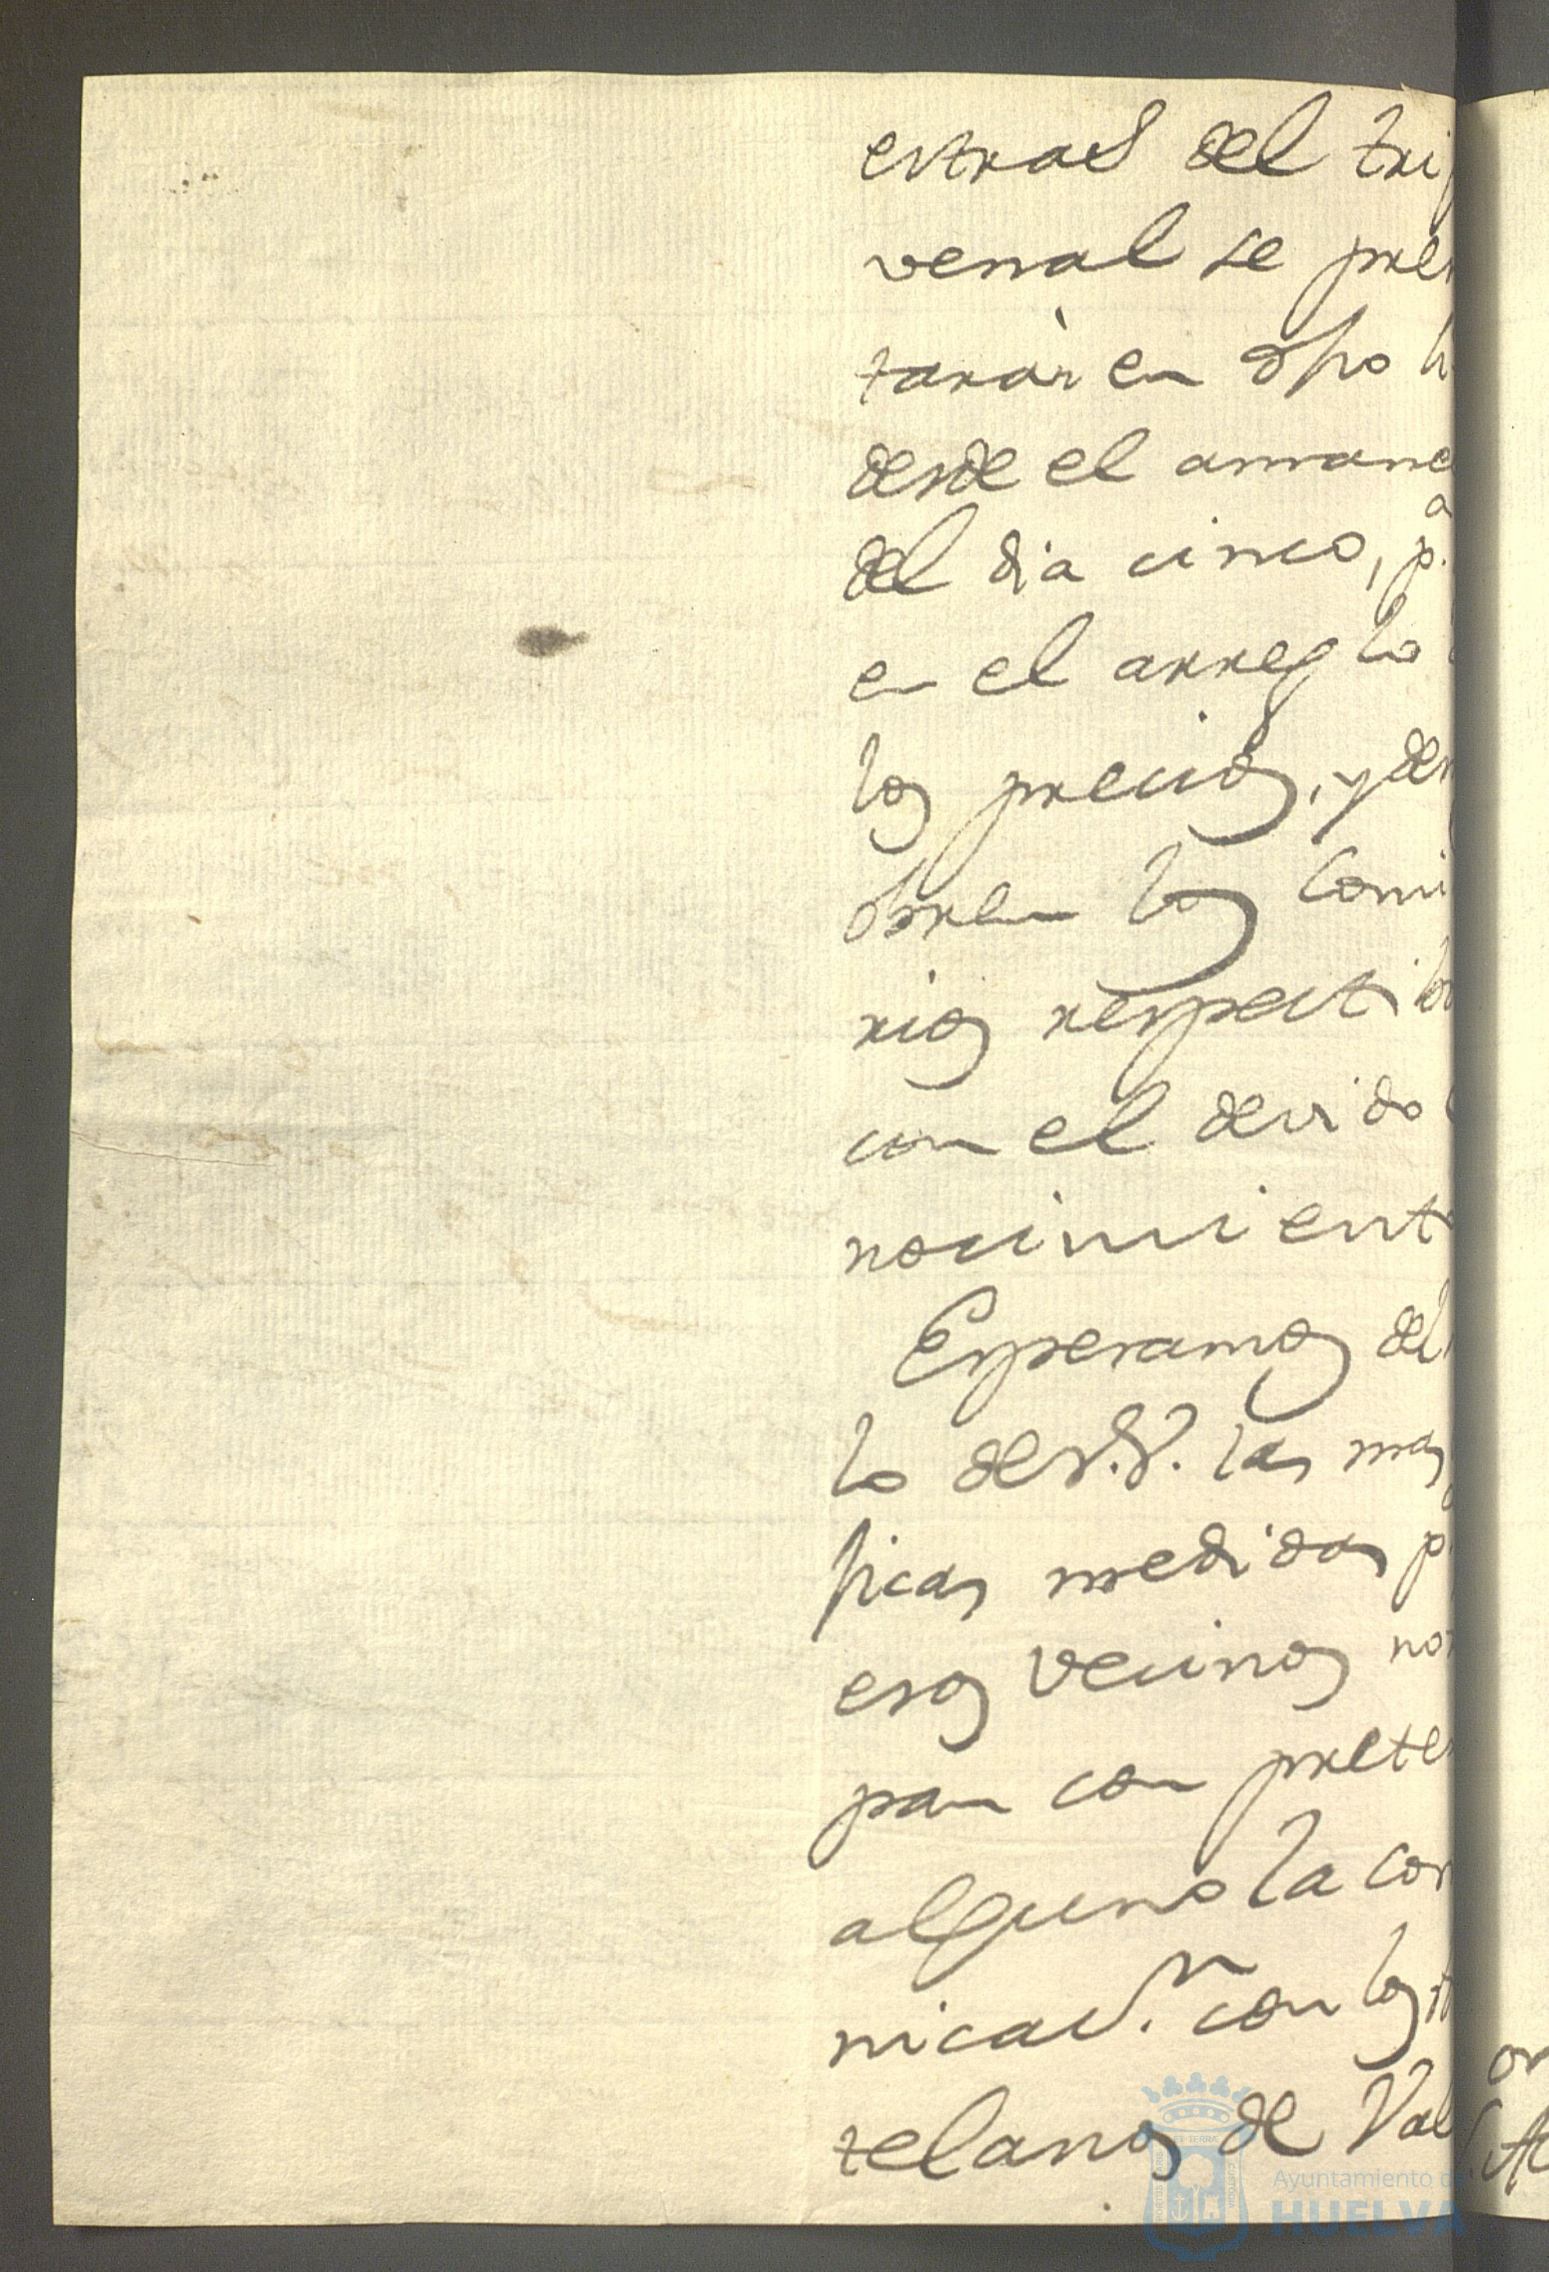 estras del tri
venal se pre
taràn en dho
desde el amane
del dia cinco, p.ª
en el arreglo
los precios, y de
obren los Comi
rios respectibo
con el devido
nocimient
Esperamos del
lo de V.S. las mas
ficas medidas p
esos vecinos no
pan con prete
alguno la co
nicac.n con los
telanos de Val
Ayuntamiento de
HUELVA